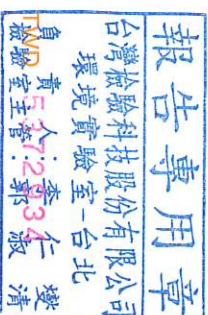 報告專用章
台灣檢驗科技股份有限公司
環境實驗室-台北
負責人:李仁燮
檢驗室主管:郭淑清
TWD
5372934